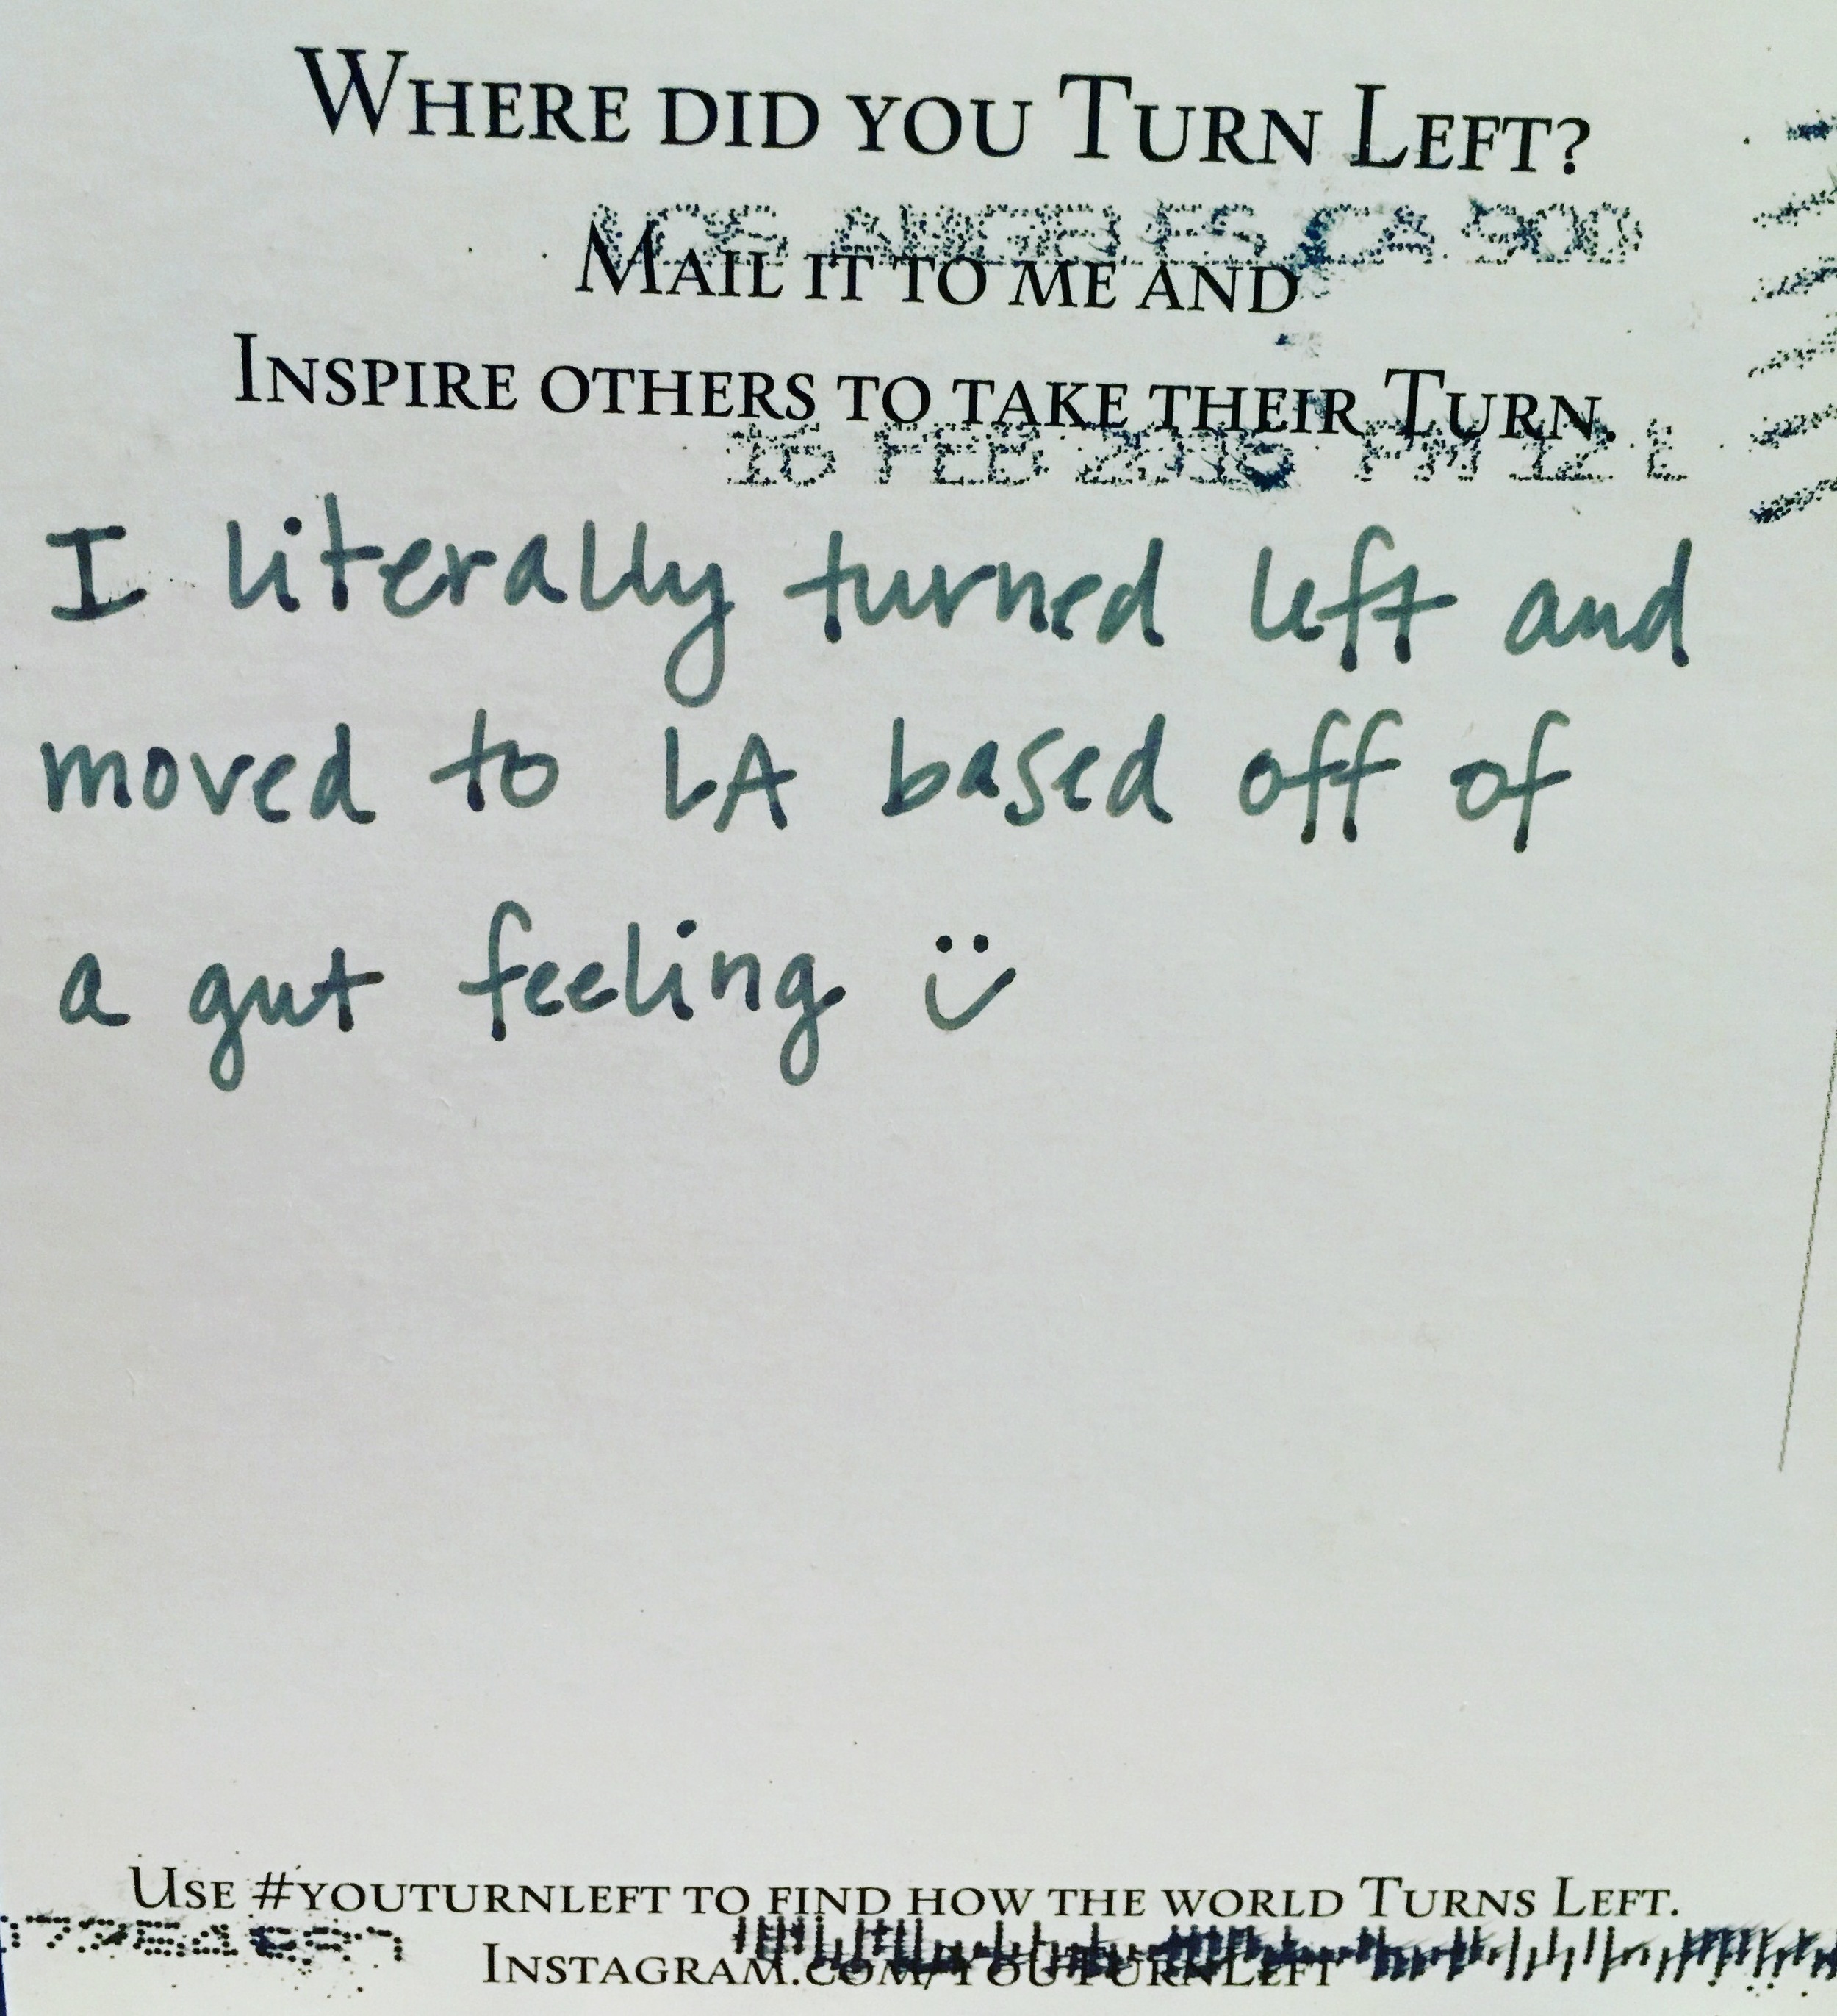 Where did you Turn Left?
LOS ANGELES CA 900
Mail it to me and
Inspire others to take their Turn.
16 FEB 2016 PM 12 L
I literally turned left and
moved to LA based off of
a gut feeling
Use #youturnleft to find how the world Turns Left.
Instagram.com/YouTurnLeft